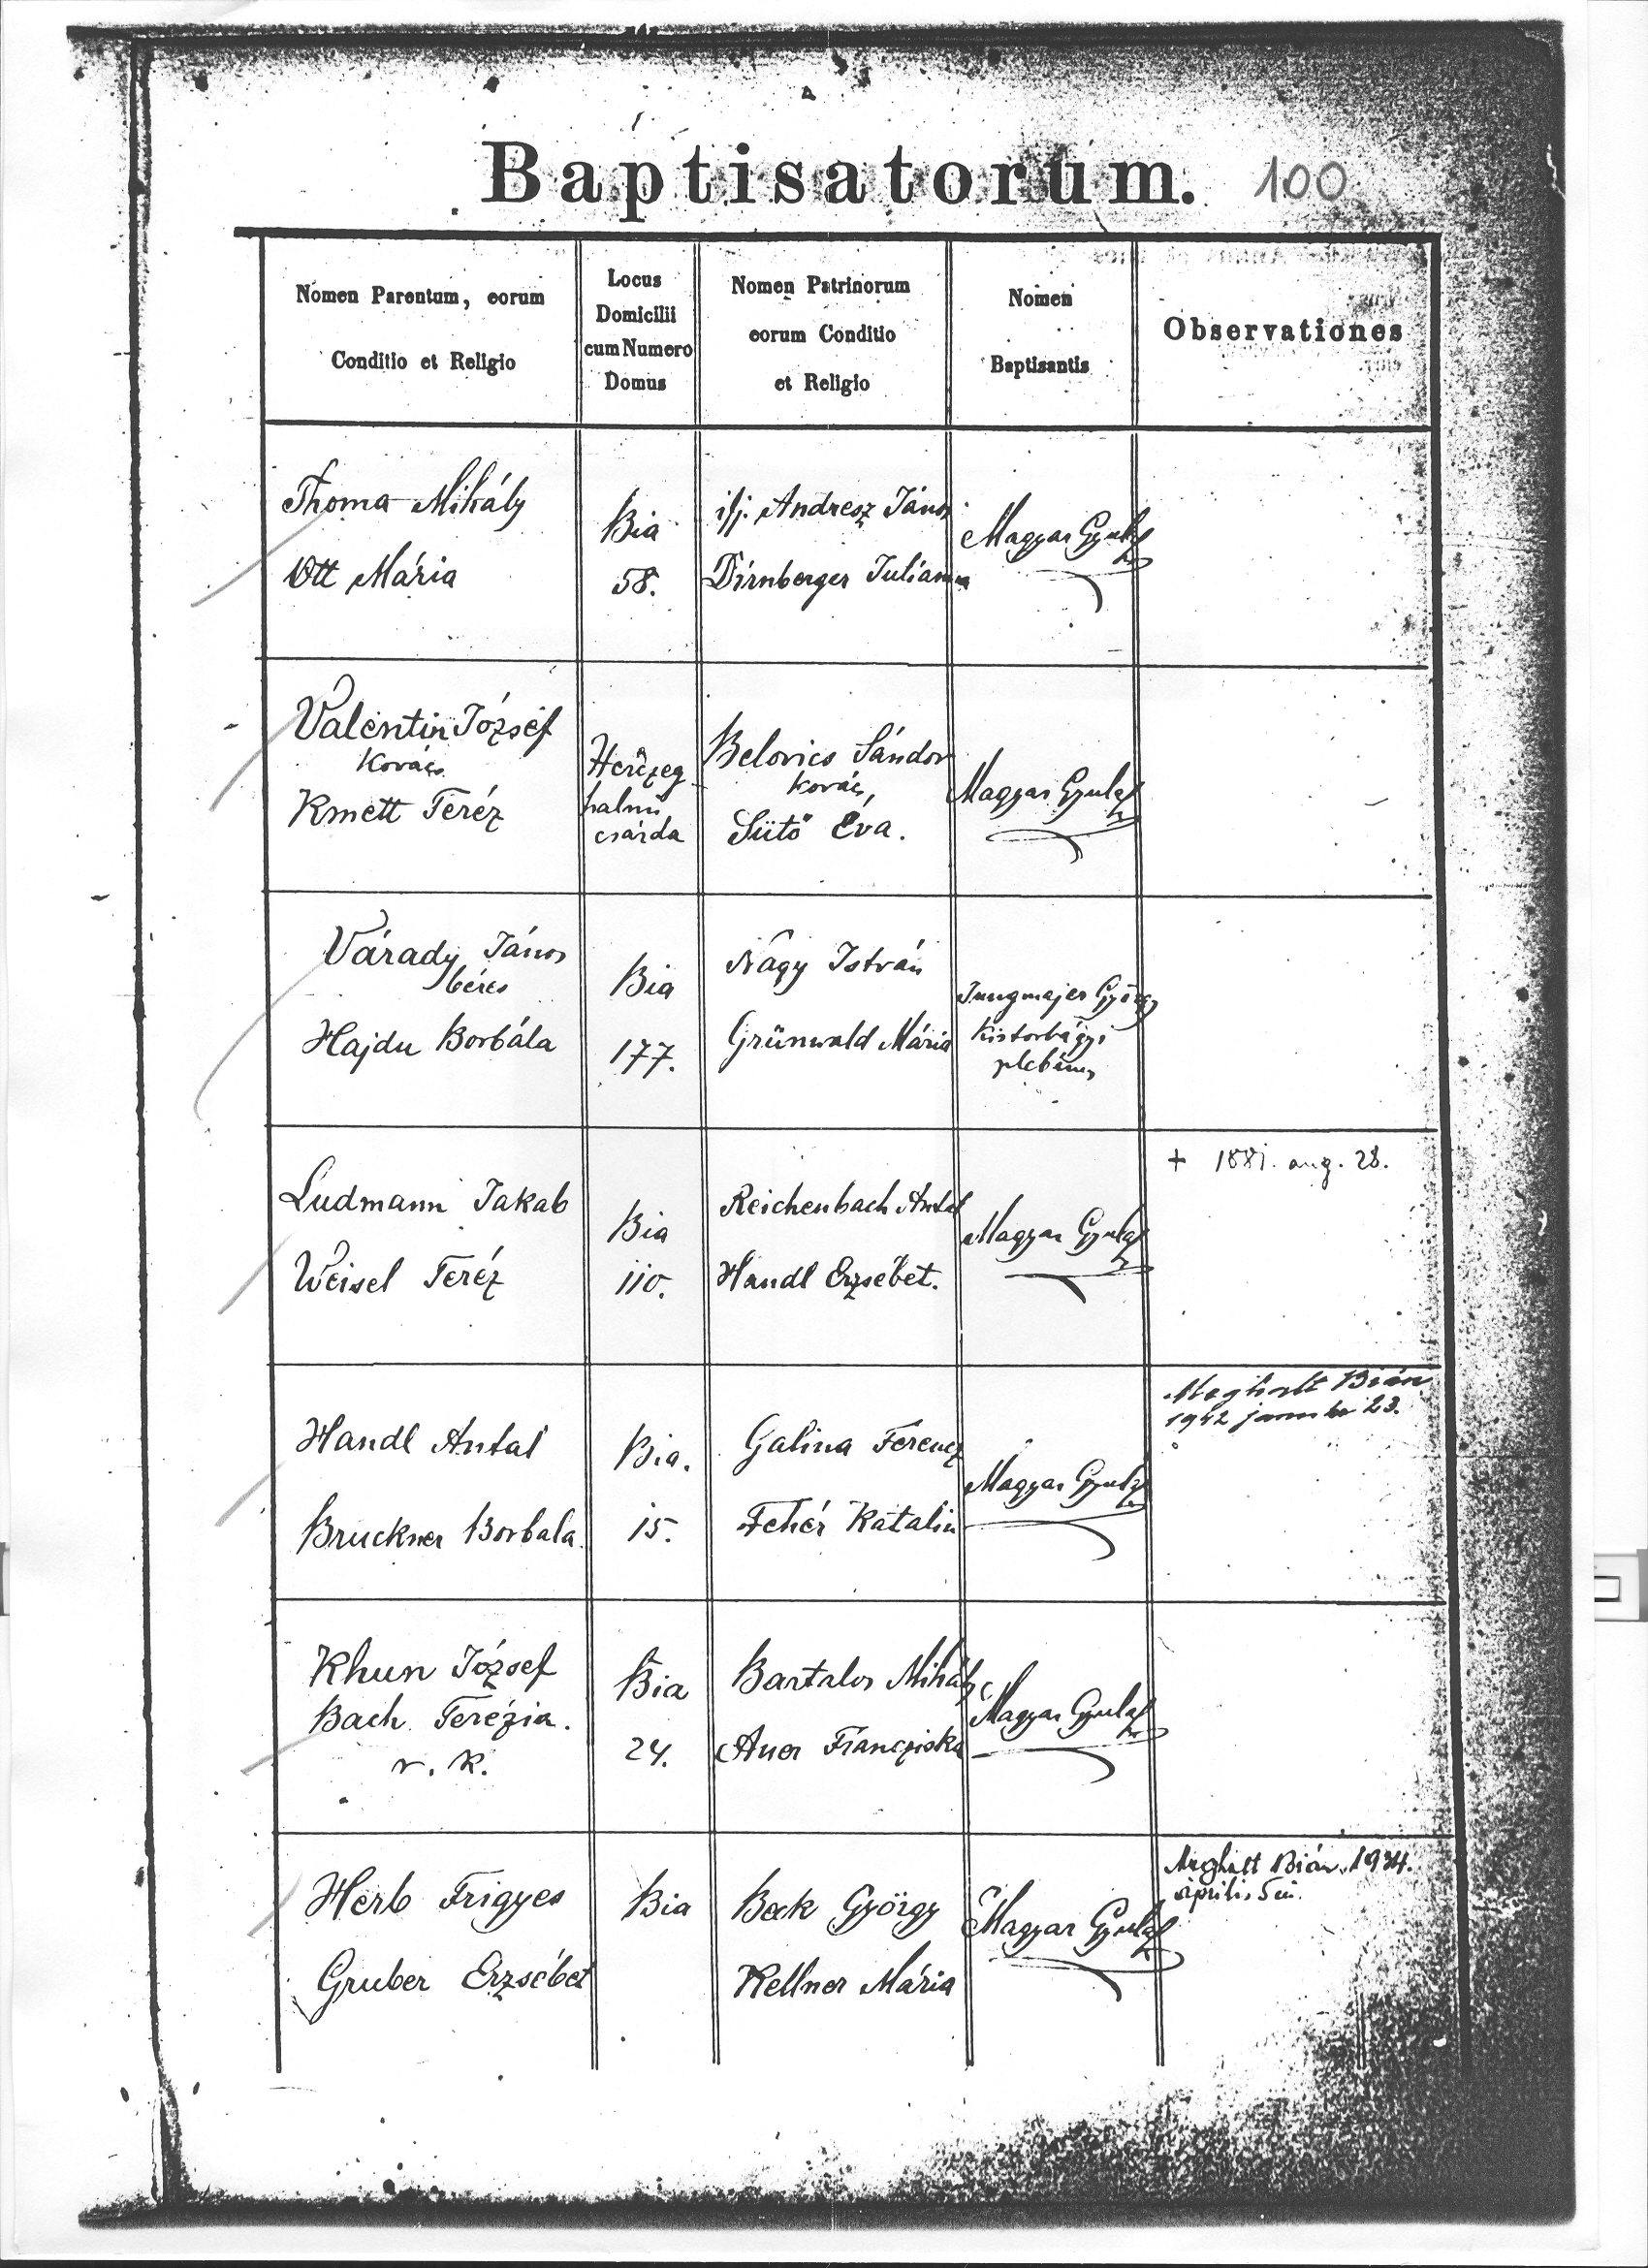 Baptisatorum. 100
Nomen Parentum, eorum
Conditio et Religio
Locus
Domicilii
cum Numero
Domus
Nomen Patrinorum
eorum Conditio
et Religio
Nomen
Baptisantis
Observationes
Thoma Mihály
Ott Mária
Bia
58.
ifj. Andresz János
Dirnberger Julianna
Magyar Gyula
Valentin József
Kovács
Kmett Teréz
Herczeg
halmi
csárda
Belovics Sándor
Kovács
Sütő Éva.
Magyar Gyula
Várady János
béres
Hajdu Borbála
Bia
177.
Nagy István
Grünwald Mária
Jungmajer György
Kistorbágyi
plébános
Ludmann Jakab
Weisel Teréz
Bia
110.
Reichenbach Antal
Handl Erzsébet.
Magyar Gyula
+ 1881. aug. 28.
Handl Antal
Bruckner Borbala
Bia.
15.
Galina Ferencz
Fehér Katalin
Magyar Gyula
Meghalt Bián
1942 január 23.
Khun József
Bach Terézia.
r. k.
Bia
24.
Bartalos Mihály
Auer Francziska
Magyar Gyula
Herb Frigyes
Gruber Erzsébet
Bia
Beck György
Kellner Mária
Magyar Gyula
Meghalt Bián, 1934.
április 5én.